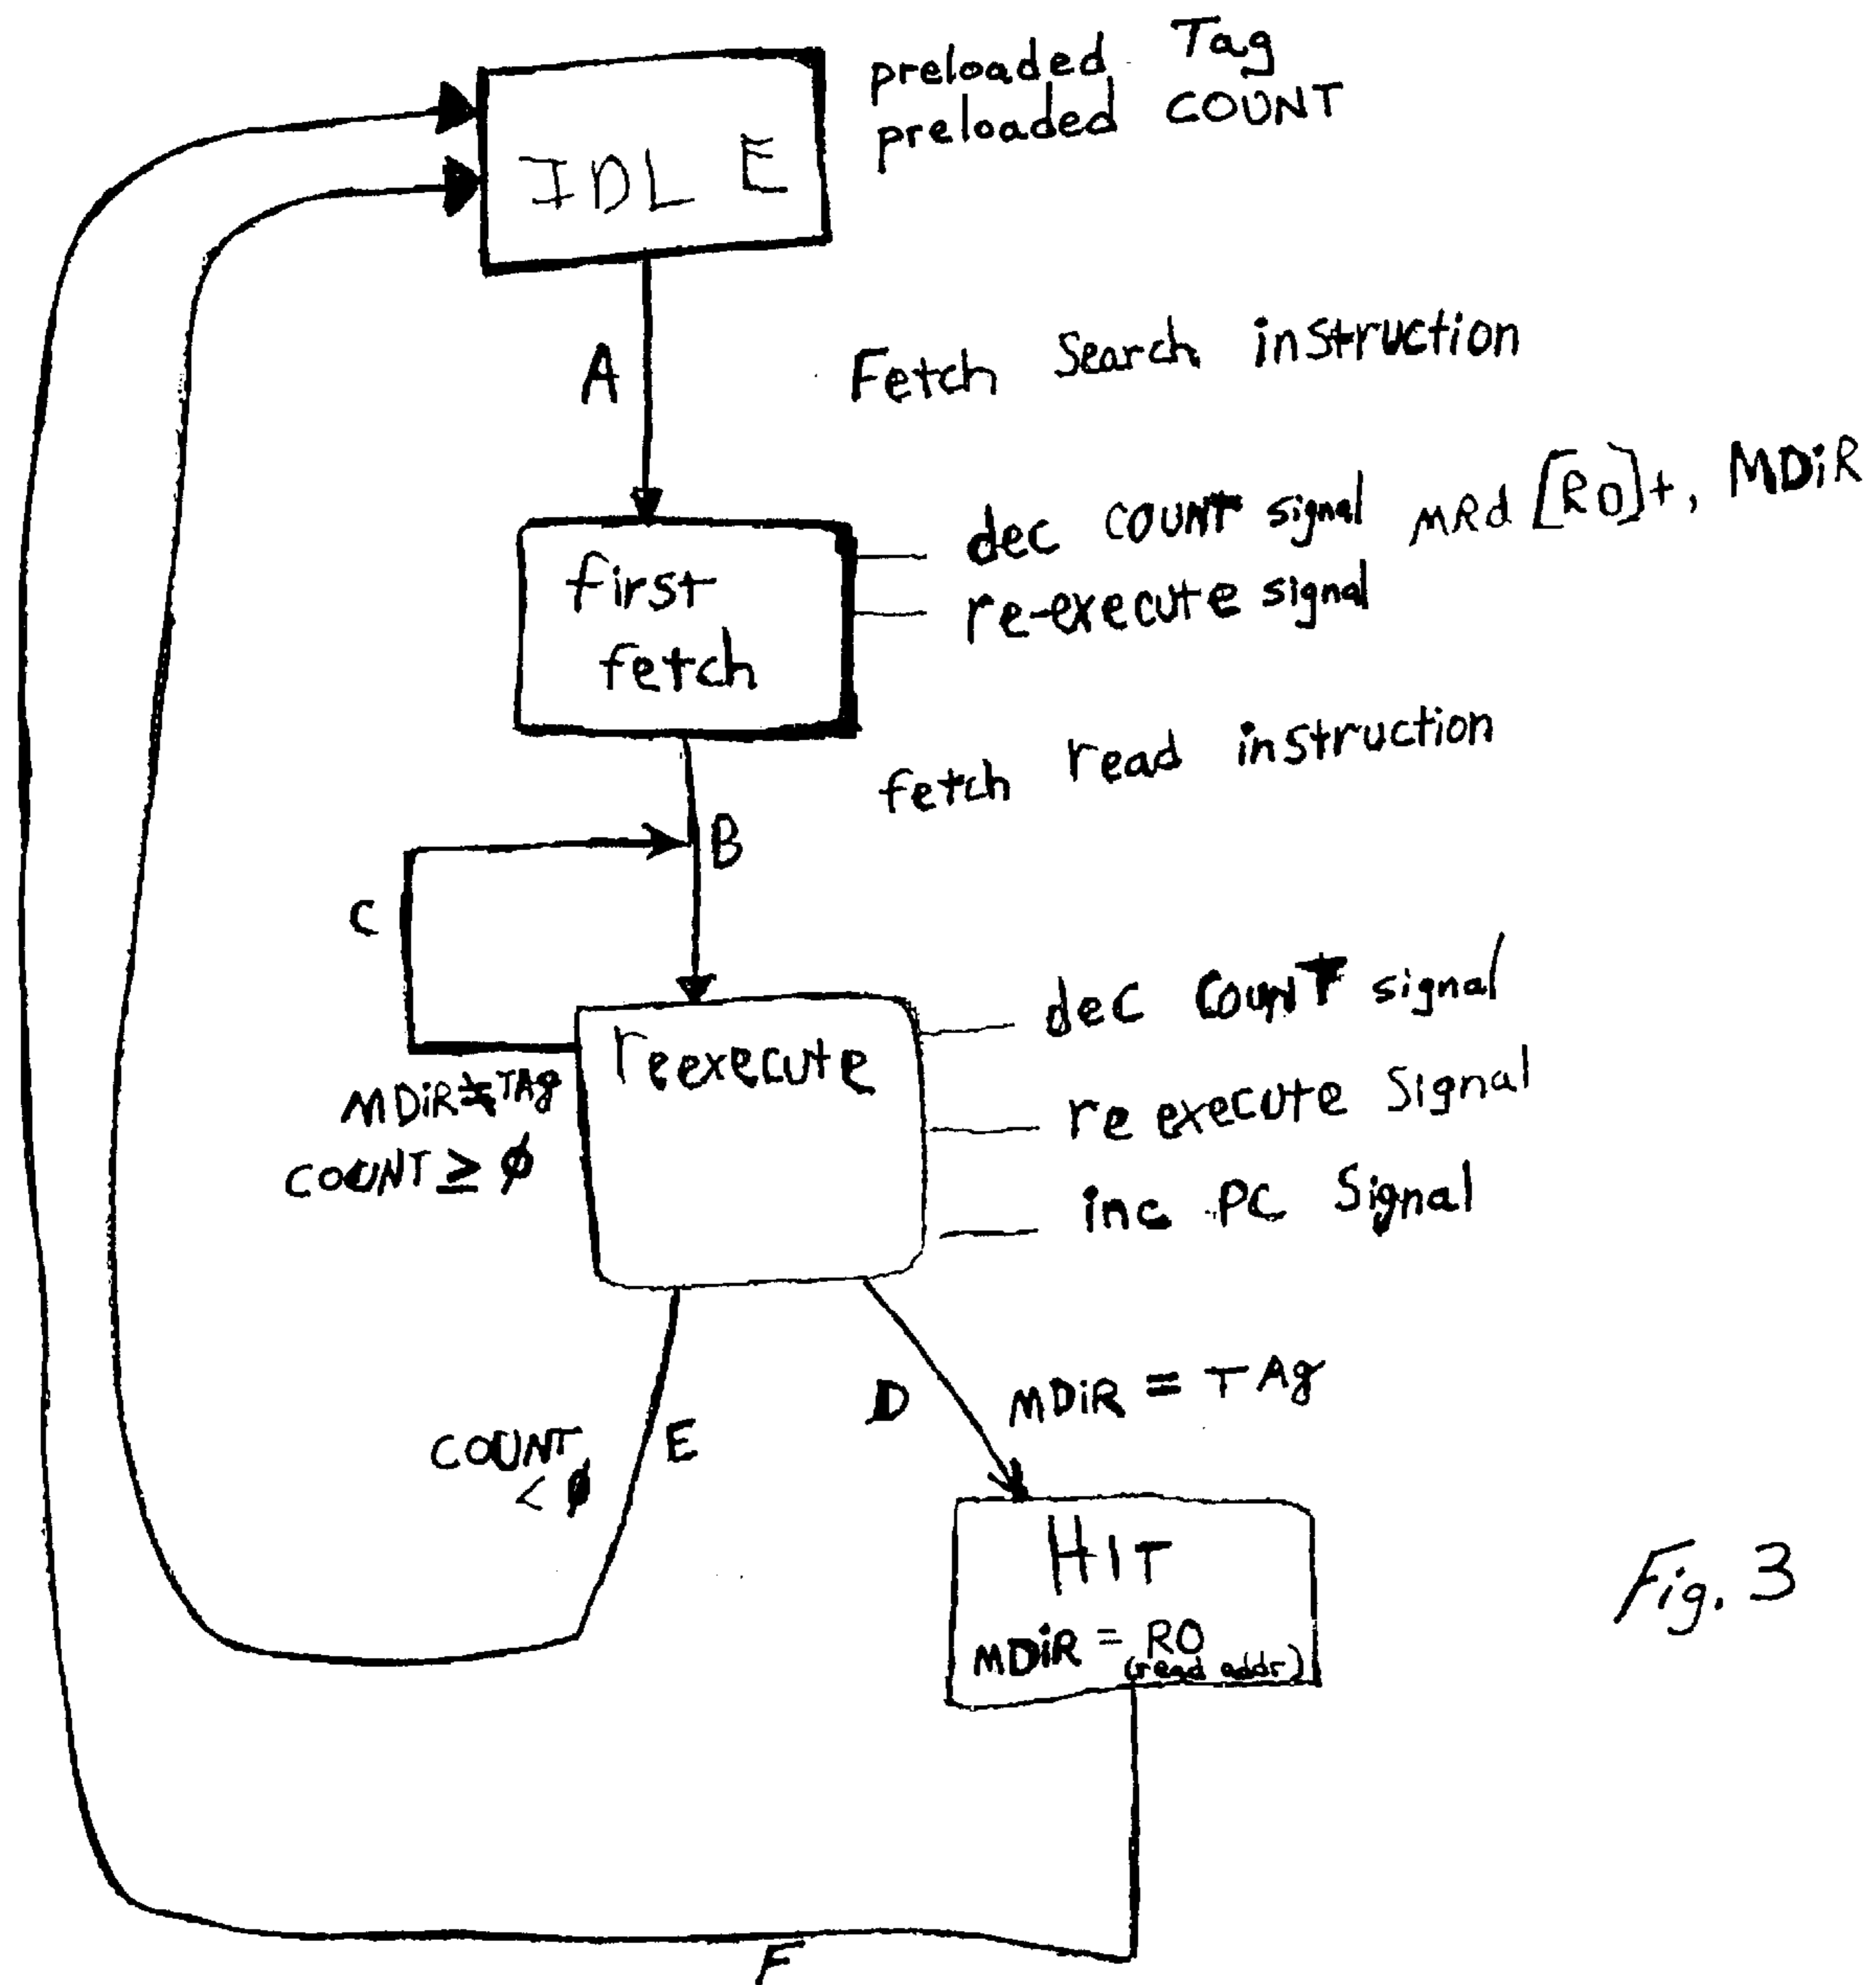 preloaded Tag
preloaded COUNT
IDLE
A
Fetch Search instruction
dec COUNT signal MRd [R0]+, MDiR
re-execute signal
first
fetch
fetch read instruction
B
C
reexecute
dec COUNT signal
re execute Signal
inc PC Signal
MDiR ≠ TAg
COUNT ≥ ∅
D
MDiR = TAg
COUNT
< ∅
E
HIT
MDiR = R0
(read addr)
Fig. 3
F